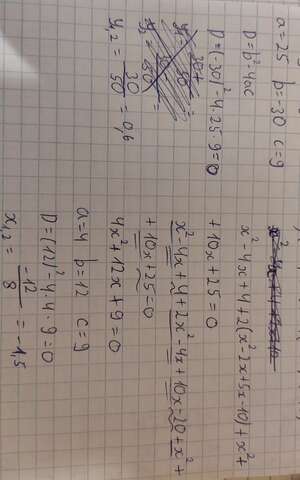 a=25 b=-30 c=9
D=b²-4ac
D=(-30)²-4·25·9=0
y₁,₂ = 30/50 = 0,6
x²-4x+4+2(x²-2x+5x-10)+x²+
+10x+25=0
x²-4x+4+2x²-4x+10x-20+x²+
+10x+25=0
4x²+12x+9=0
a=4 b=12 c=9
D=(12)²-4·4·9=0
x₁,₂ = -12/8 = -1,5